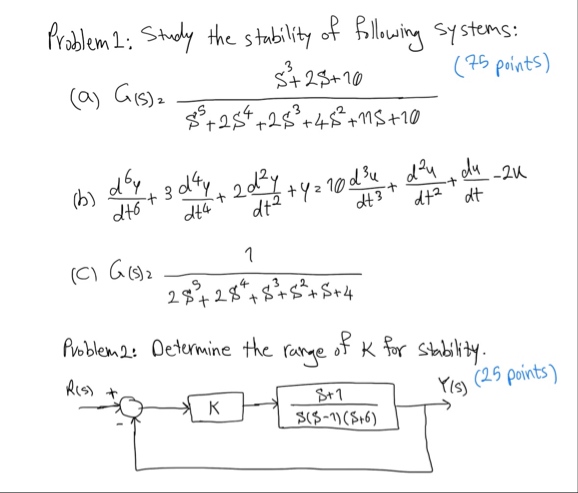 Problem 1: Study the stability of following systems:
(75 points)
(a) G(s)= (s³+2s+10)/(s⁵+2s⁴+2s³+4s²+11s+10)
(b) d⁶y/dt⁶ + 3 d⁴y/dt⁴ + 2 d²y/dt² + y = 10 d³u/dt³ + d²u/dt² + du/dt - 2u
(C) G(s)= 1/(2s⁵+2s⁴+s³+s²+s+4)
Problem 2: Determine the range of K for stability.
(25 points)
R(s) + - K (s+1)/(s(s-1)(s+6)) Y(s)